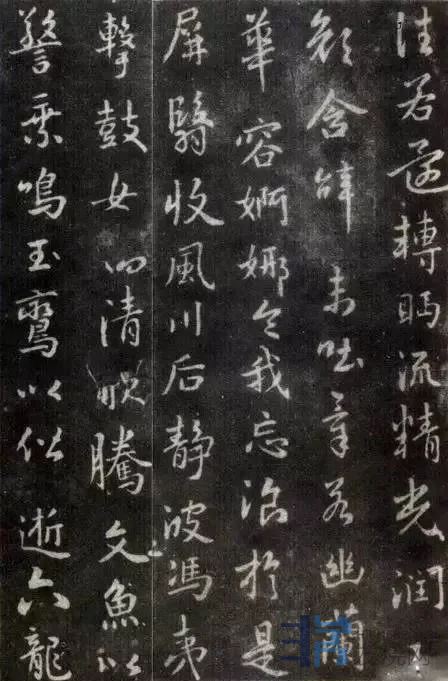 往若還轉眄流精光潤
顏含辭未吐氣若幽蘭
華容婀娜令我忘湌於是
屏翳收風川后靜波馮夷
擊鼓女媧清歌騰文魚以
警乘鳴玉鸞以偕逝六龍